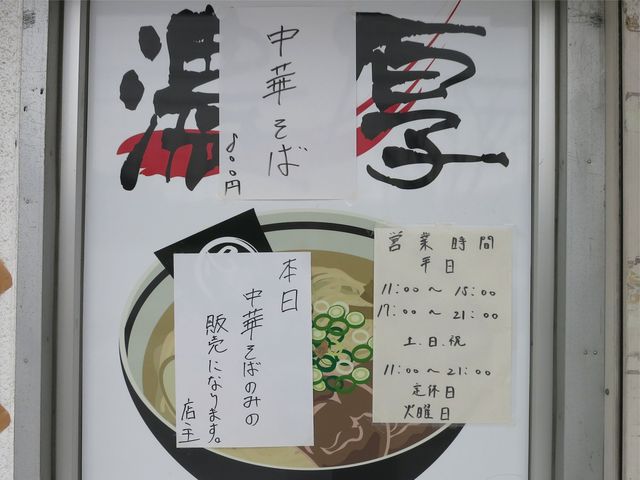 濃厚
中華そば
800円
本日
中華そばのみの
販売になります。
店主
営業時間
平日
11:00～15:00
17:00～21:00
土.日.祝
11:00～21:00
定休日
火曜日